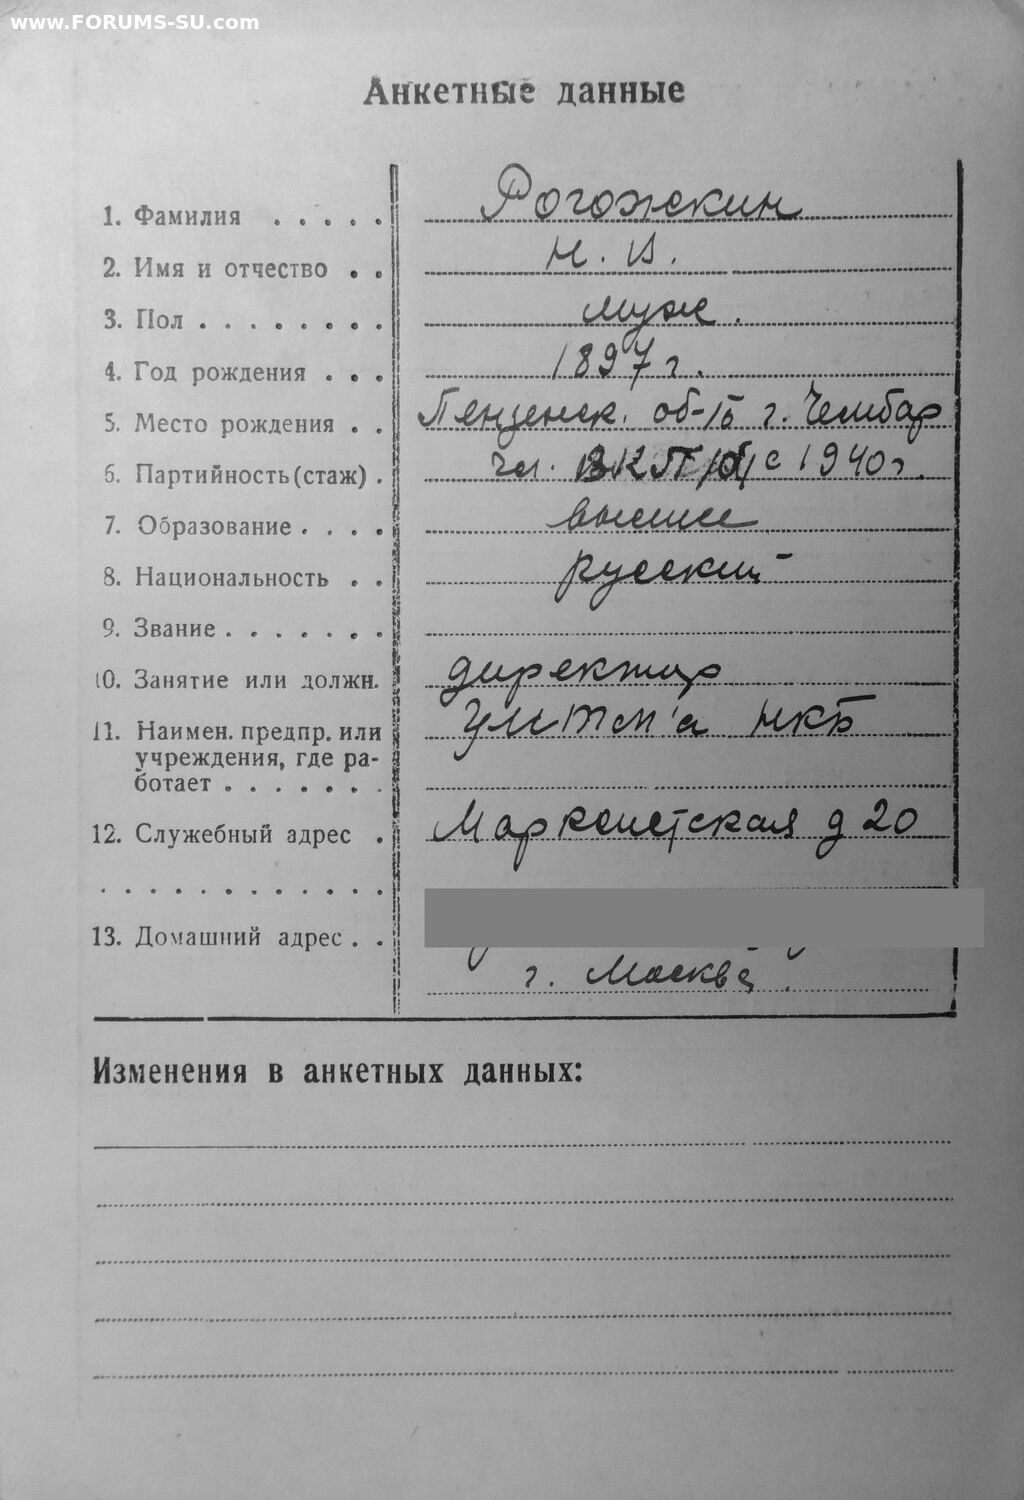 www.FORUMS-SU.com
Анкетные данные
1. Фамилия . . . . . Рогожкин
2. Имя и отчество . . Н. В.
3. Пол . . . . . . . . муж.
4. Год рождения . . . 1897 г.
5. Место рождения . . Пензенск. об-ть г. Чембар
6. Партийность (стаж) . чл. ВКП/б/ с 1940 г.
7. Образование . . . . высшее
8. Национальность . . русский
9. Звание . . . . . . .
10. Занятие или должн. директор
11. Наимен. предпр. или НКБ
учреждения, где ра-
ботает . . . . . . .
12. Служебный адрес . Марксистская д 20
13. Домашний адрес . .
г. Москва.
Изменения в анкетных данных: